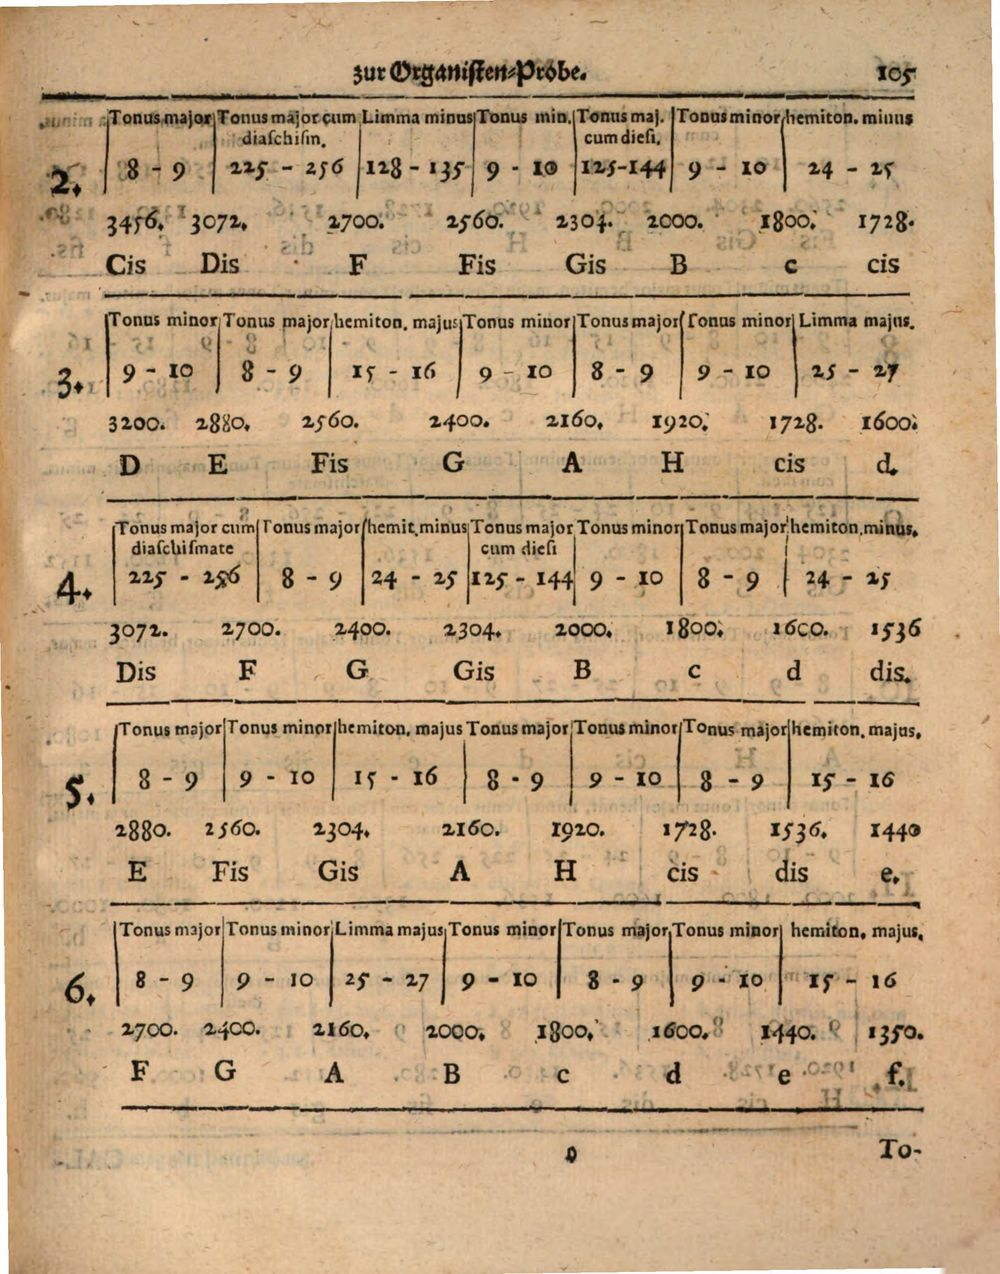 zur Organisten-Probe. 105
Tonus major Tonus major cum Limma minus Tonus min. Tonus maj. Tonus minor hemiton. minus
diaschisin. cum diesi.
2. 8 - 9 225 - 256 128 - 135 9 - 10 125-144 9 - 10 24 - 25
3456. 3072. 2700. 2560. 2304. 2000. 1800. 1728.
Cis Dis F Fis Gis B c cis
Tonus minor Tonus major hemiton. majus Tonus minor Tonus major Tonus minor Limma majus.
3. 9 - 10 8 - 9 15 - 16 9 - 10 8 - 9 9 - 10 25 - 27
3200. 2880. 2560. 2400. 2160. 1920. 1728. 1600.
D E Fis G A H cis d.
Tonus major cum Tonus major hemit. minus Tonus major Tonus minor Tonus major hemiton. minus.
diaschismate cum diesi
4. 225 - 256 8 - 9 24 - 25 125 - 144 9 - 10 8 - 9 24 - 25
3072. 2700. 2400. 2304. 2000. 1800. 1600. 1536
Dis F G Gis B c d dis.
Tonus major Tonus minor hemiton. majus Tonus major Tonus minor Tonus major hemiton. majus.
5. 8 - 9 9 - 10 15 - 16 8 - 9 9 - 10 8 - 9 15 - 16
2880. 2560. 2304. 2160. 1920. 1728. 1536. 1440
E Fis Gis A H cis dis e.
Tonus major Tonus minor Limma majus Tonus minor Tonus major Tonus minor hemiton. majus.
6. 8 - 9 9 - 10 25 - 27 9 - 10 8 - 9 9 - 10 15 - 16
2700. 2400. 2160. 2000. 1800. 1600. 1440. 1350.
F G A B c d e f.
To-